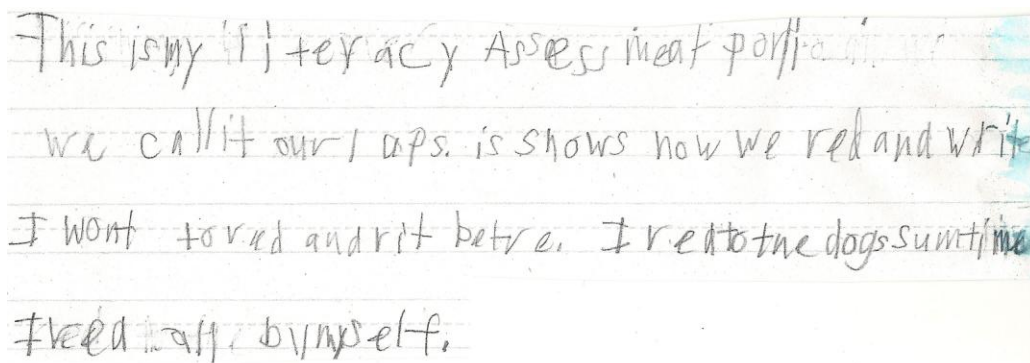 This is my literacy Assessment portfo
we call it our laps. is shows how we red and write
I wont to red and rit betre. I red to the dogs sumtime
I reed all by myself.